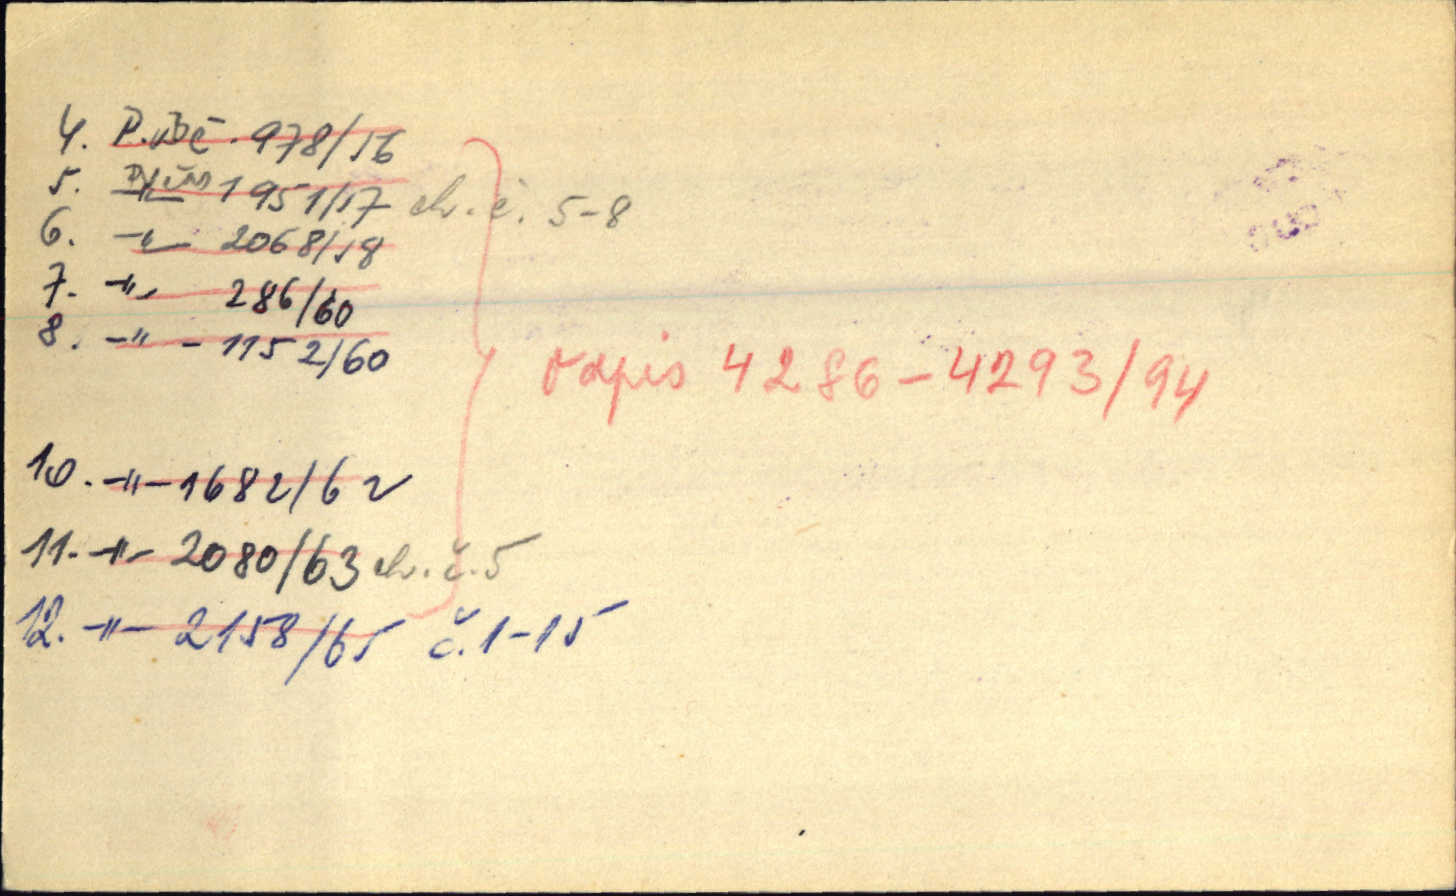 4. P. 978/56
5. -"- 1951/57 chr. č. 5-8
6. -"- 2068/58
7. -"- 286/60
8. -"- 1152/60
odpis 4286-4293/94
10. -"- 1682/62
11. -"- 2080/63 chr. č. 5
12. -"- 2158/65 č. 1-15